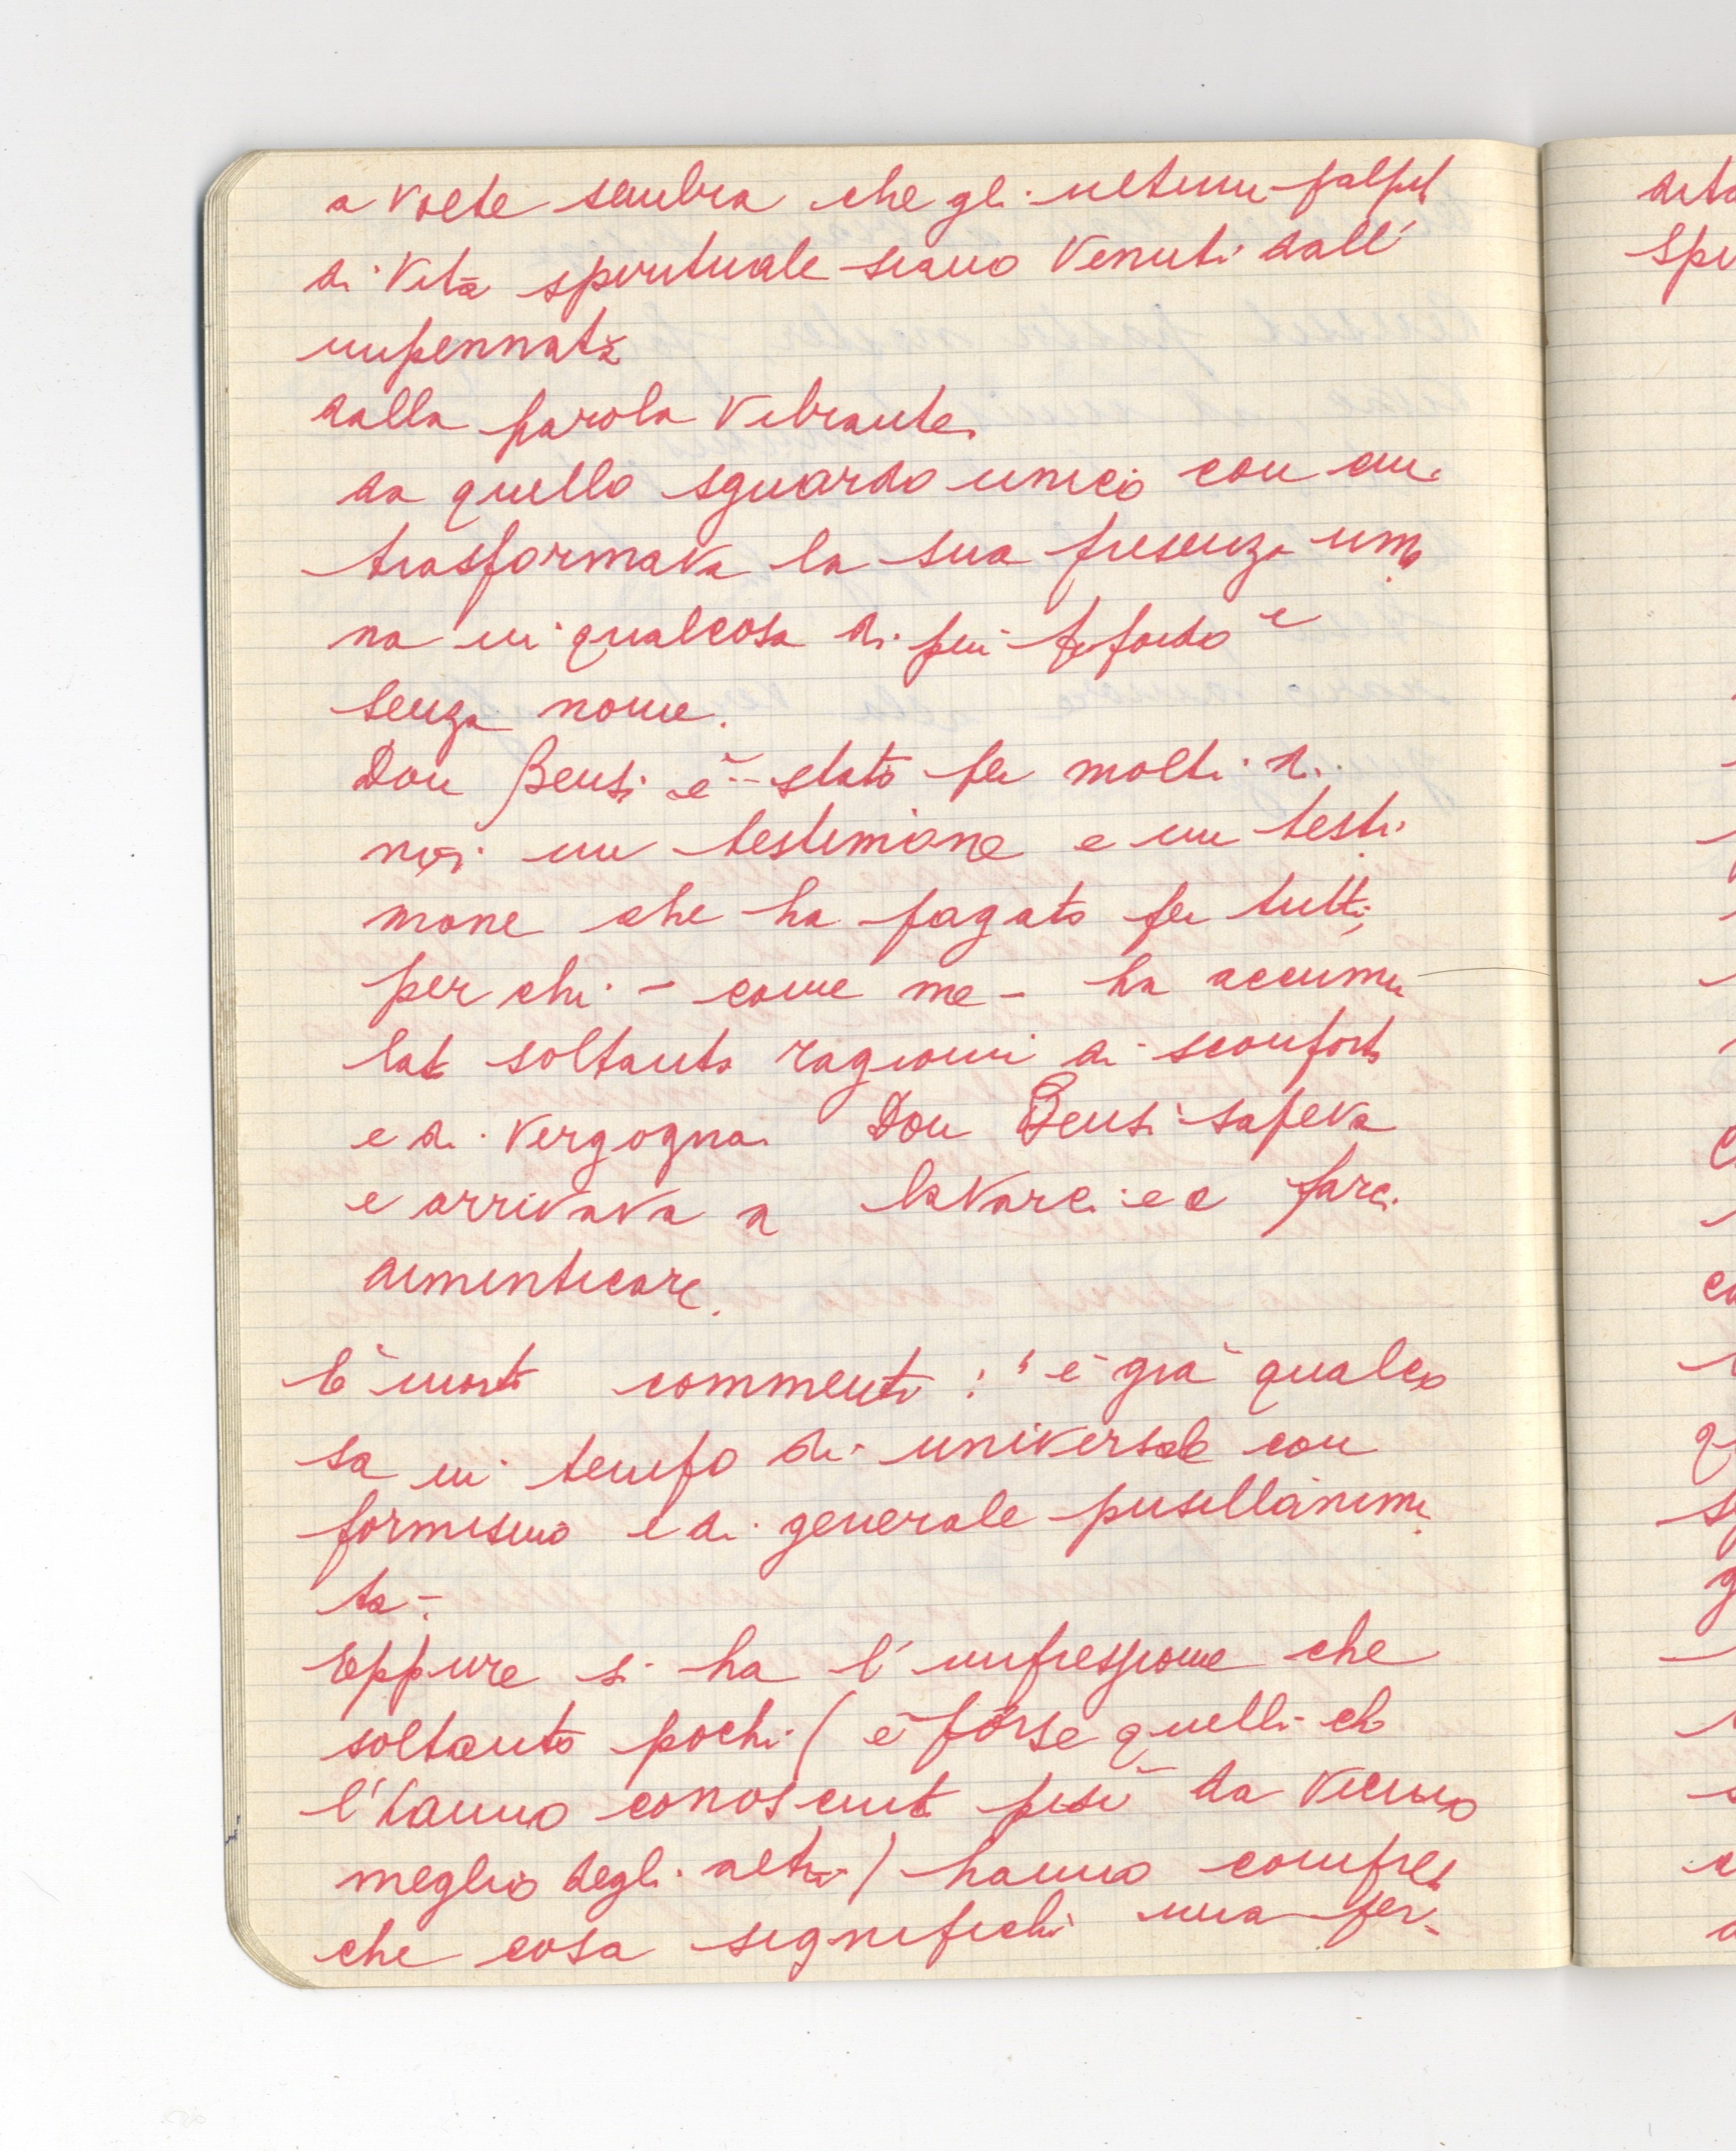 a volte sembra che gli ultimi palpiti
di vita spirituale siano venuti dall'
impennata
dalla parola vibrante.
da quello sguardo unico con cui
trasformava la sua presenza uma
na in qualcosa di più profondo e
senza nome.
Don Bensi è stato per molti di
noi un testimone e un testi
mone che ha pagato per tutti,
per chi - come me - ha accumu
lato soltanto ragioni di sconforto
e di vergogna. Don Bensi sapeva
e arrivava a lavarci e a farci
dimenticare.
E' morto commenti : " è già qualco
sa in tempo di universale con
formismo e di generale pusillanimi
tà -
Eppure si ha l'impressione che
soltanto pochi ( e forse quelli che
l'hanno conosciuto più da vicino
meglio degli altri ) hanno compreso
che cosa significhi una per-
dito
spi